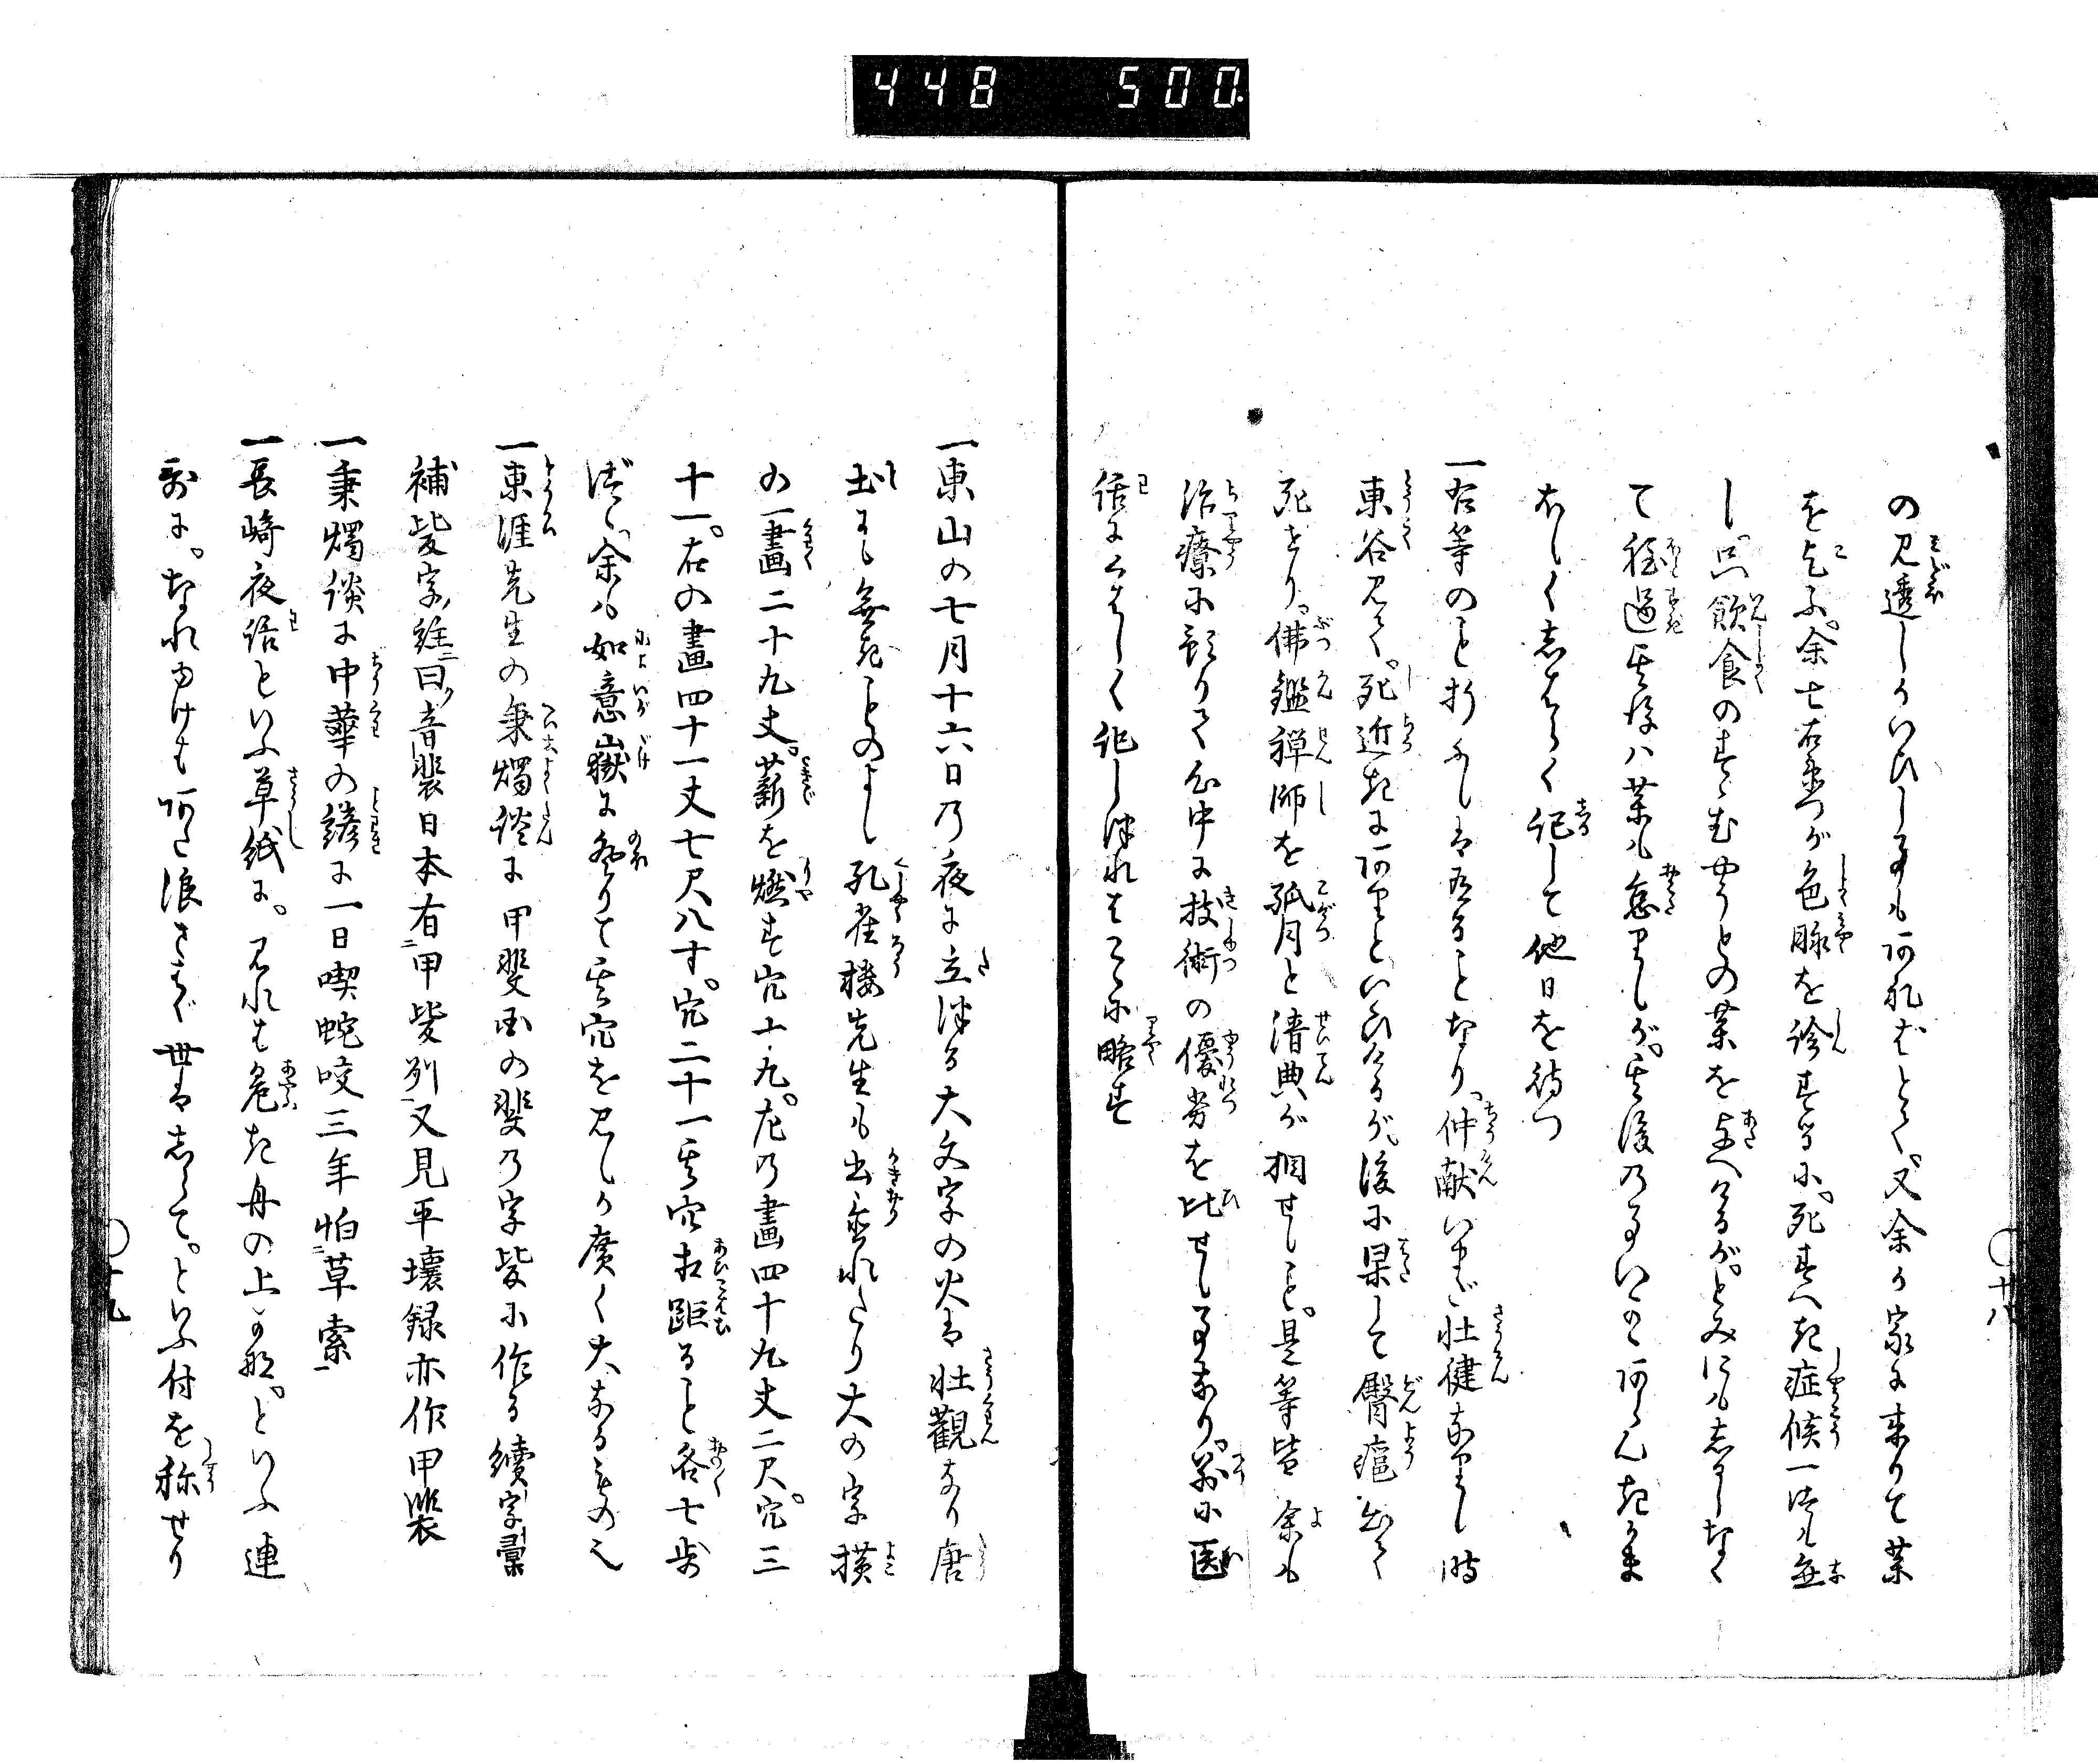 448 500
の見透しかいひし事も阿れどとく又余か家に来りて薬
を乞ふ。余七右衛門が色脉を診するに。死すへき症候一つも無
し。只飲食のすゝむやうとの薬を与へけるが。とみにもしるしなく
て程過其後ハ薬も怠りしが。其後の事いかゝ阿らんきかま
ほしくしはらく記して他日を待つ
一右等のこと折ふしは有ることなり。仲献いまだ壮健なりし時
東谷見て。死近きに阿りといひけるが。後に果して臀癰出て
死せり。佛鑑禅師を孤月と清典が相せしこと。是等皆余も
治療に預りて台中に技術の優劣を比せし事あり。前に医
話にくはしく記し侍れはこゝに略す
十八
一東山の七月十六日乃夜に立侍る大文字の火は壮觀なり唐
土にも無きことのよし孔雀樓先生も書置れたり大の字横
の一畫二十九丈。薪を燃す穴十九。左乃畫四十九丈二尺。穴三
十一。右の畫四十一丈七尺八寸。穴二十一其穴相距ること各七歩
づゝ余も如意嶽に登りて其穴を見しか廣く大なるもの也
一東涯先生の秉燭譚に甲斐国の斐乃字㠱に作る續字彙
補㠱字註曰音裴日本有甲㠱列又見平壤録亦作甲裴
一秉燭談に中華の諺に一日喫蛇咬三年怕草索
一長崎夜話といふ草紙に。見れも危き舟の上かな。といふ連
哥に。なれぬれは阿た浪さはく世はしらて。といふ付を称せり
十九